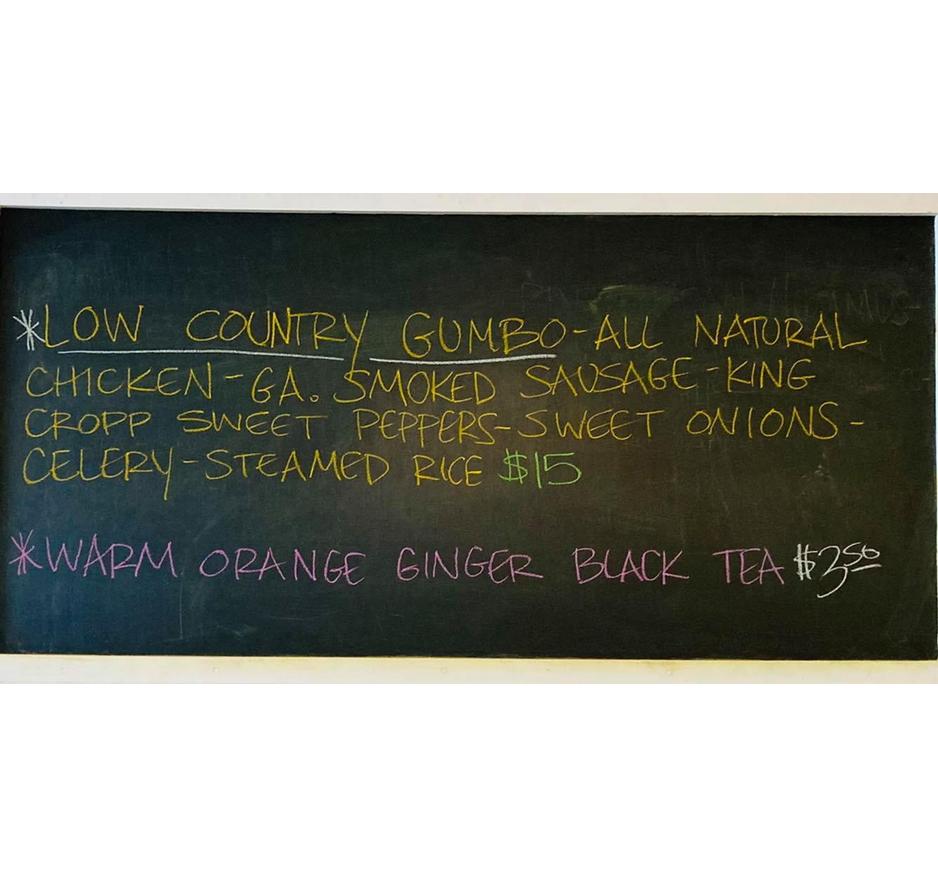 *LOW COUNTRY GUMBO-ALL NATURAL
CHICKEN-GA. SMOKED SAUSAGE-KING
CROPP SWEET PEPPERS-SWEET ONIONS-
CELERY-STEAMED RICE $15
*WARM ORANGE GINGER BLACK TEA $3.50